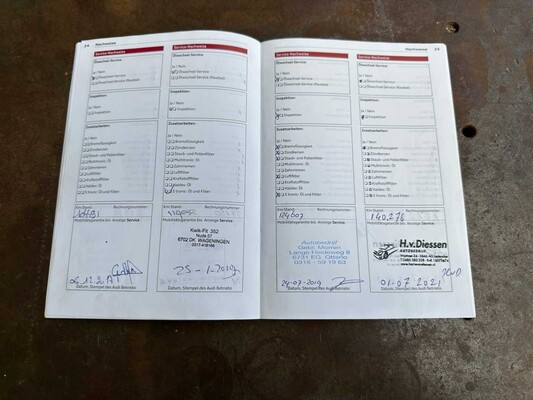 24 Nachweise
Service-Nachweise
Ölwechsel-Service
Ja / Nein
Ölwechsel-Service
Ölwechsel-Service (flexibel)
Inspektion:
Ja / Nein
Inspektion
Zusatzarbeiten:
Ja / Nein
Bremsflüssigkeit
Zündkerzen
Staub- und Pollenfilter
Multitronic: Öl
Zahnriemen
Luftfilter
Kraftstofffilter
Haldex: Öl
S tronic: Öl und Filter
Km-Stand: Rechnungsnummer:
Mobilitätsgarantie bis: Anzeige Service:
Datum, Stempel des Audi Betriebs
Service-Nachweise
Ölwechsel-Service
Ja / Nein
Ölwechsel-Service
Ölwechsel-Service (flexibel)
Inspektion:
Ja / Nein
Inspektion
Zusatzarbeiten:
Ja / Nein
Bremsflüssigkeit
Zündkerzen
Staub- und Pollenfilter
Multitronic: Öl
Zahnriemen
Luftfilter
Kraftstofffilter
Haldex: Öl
S tronic: Öl und Filter
Km-Stand: Rechnungsnummer:
Mobilitätsgarantie bis: Anzeige Service:
Kwik-Fit 352
Nude 57
6702 DK WAGENINGEN
0317-418186
25-1-2019
Datum, Stempel des Audi Betriebs
Nachweise 25
Service-Nachweise
Ölwechsel-Service
Ja / Nein
Ölwechsel-Service
Ölwechsel-Service (flexibel)
Inspektion:
Ja / Nein
Inspektion
Zusatzarbeiten:
Ja / Nein
Bremsflüssigkeit
Zündkerzen
Staub- und Pollenfilter
Multitronic: Öl
Zahnriemen
Luftfilter
Kraftstofffilter
Haldex: Öl
S tronic: Öl und Filter
Km-Stand: Rechnungsnummer:
124607
Mobilitätsgarantie bis: Anzeige Service:
Autobedrijf
Gebr. Morren
Lange Heideweg 8
6731 EG Otterlo
0318 - 59 19 63
24-07-2019
Datum, Stempel des Audi Betriebs
Service-Nachweise
Ölwechsel-Service
Ja / Nein
Ölwechsel-Service
Ölwechsel-Service (flexibel)
Inspektion:
Ja / Nein
Inspektion
Zusatzarbeiten:
Ja / Nein
Bremsflüssigkeit
Zündkerzen
Staub- und Pollenfilter
Multitronic: Öl
Zahnriemen
Luftfilter
Kraftstofffilter
Haldex: Öl
S tronic: Öl und Filter
Km-Stand: Rechnungsnummer:
140276
Mobilitätsgarantie bis: Anzeige Service:
H.v.Diessen
AUTOBEDRIJF
01-07-2021
Datum, Stempel des Audi Betriebs